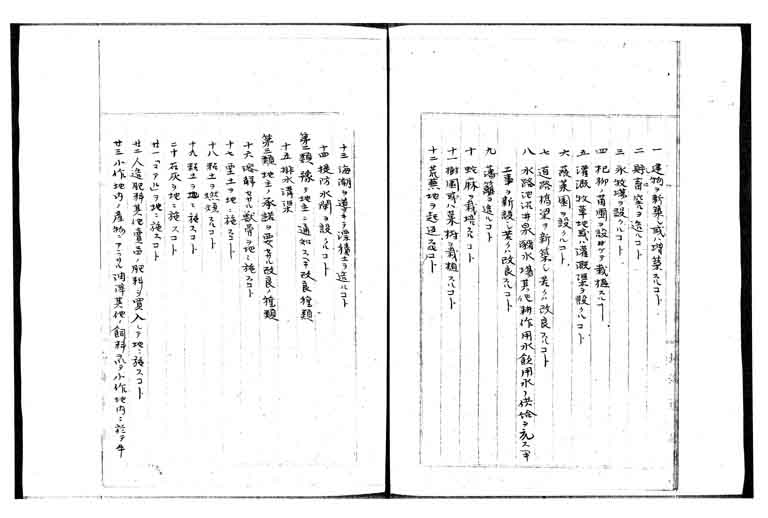 一 建物ヲ新築シ或ハ増築スルコト
二 貯畜窖ヲ造ルコト
三 永牧塲ヲ設クルコト
四 杞柳ノ苗圃ヲ設ケテ栽植スル
五 灌漑牧草地或ハ灌漑渠ヲ設クルコト
六 蔬菜園ヲ設クルコト
七 道路橋梁ヲ新築シ若クハ改良スルコト
八 水路池沼井泉 水塲其他耕作用水飲用水ノ供給ニ充スヘキ
工事ノ新設若クハ改良スルコト
九 藩籬ヲ造ルコト
十 蛇麻ヲ栽培スルコト
十一 樹園或ハ菓樹ヲ栽植スルコト
十二 荒蕪地ヲ起返スコト
十三 海潮ヲ導キテ深積土ヲ造ルコト
十四 堤防水閘ヲ設クルコト
第二類 豫メ地主ニ通知スヘキ改良種類
十五 排水溝渠
第三類 地主ノ承諾ヲ要セサル改良ノ種類
十六 溶解セル獣骨ヲ地ニ施スコト
十七 堊土ヲ地ニ施スコト
十八 粘土ヲ燃焼スルコト
十九 粘土ヲ地ニ施スコト
二十 石灰ヲ地ニ施スコト
廿一 ヲ地ニ施スコト
廿二 人造肥料其他賣品ノ肥料ヲ買入レテ地ニ施スコト
廿三 小作地内ノ産物ニアラサル油滓其他ノ飼料ヲ小作地内ニ於テ牛